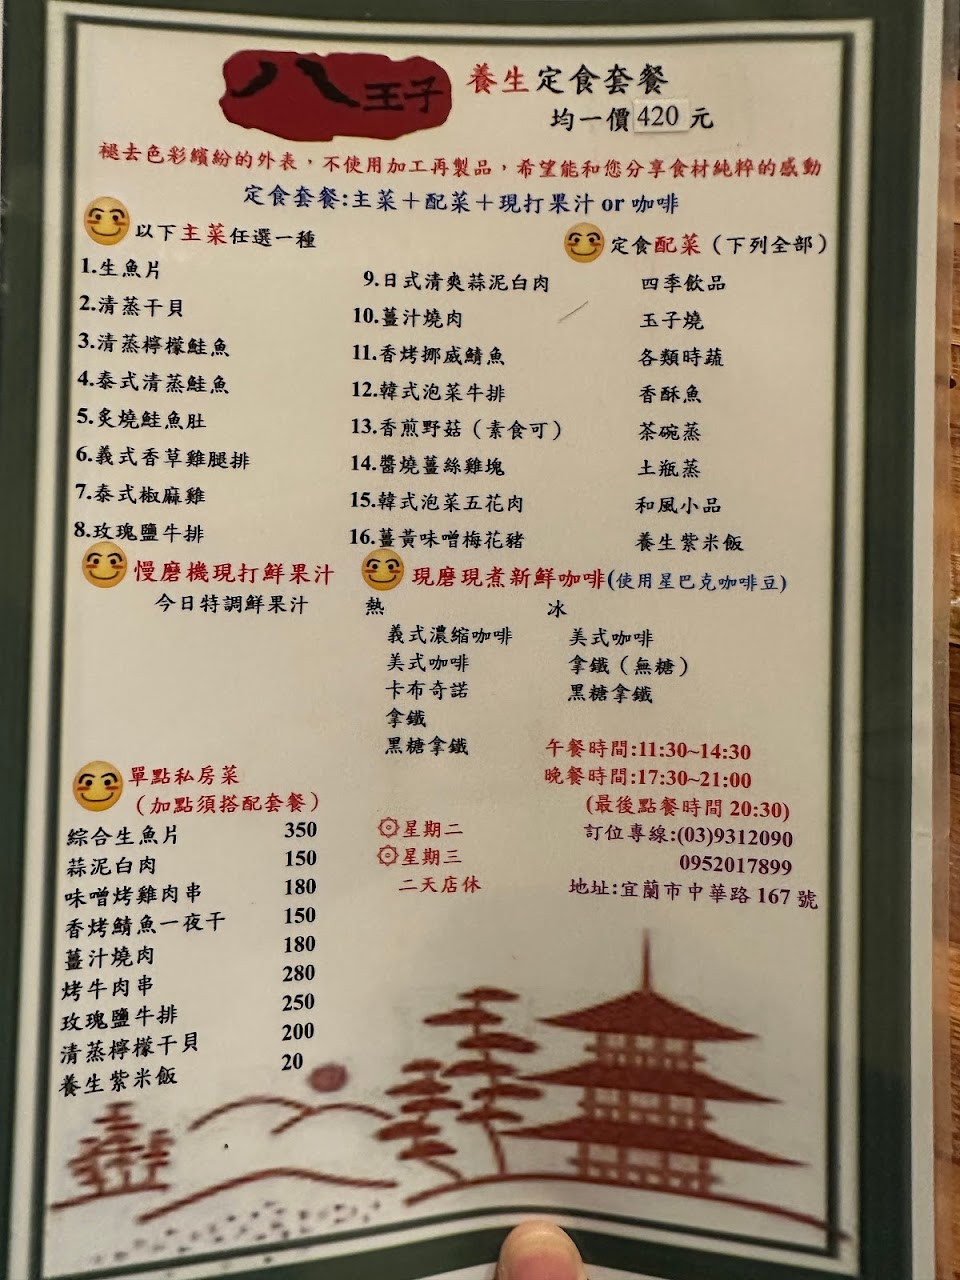 八王子
養生定食套餐
均一價420元
褪去色彩繽紛的外表，不使用加工再製品，希望能和您分享食材純粹的感動
定食套餐:主菜＋配菜＋現打果汁 or 咖啡
以下主菜任選一種
1.生魚片
2.清蒸干貝
3.清蒸檸檬鮭魚
4.泰式清蒸鮭魚
5.炙燒鮭魚肚
6.義式香草雞腿排
7.泰式椒麻雞
8.玫瑰鹽牛排
9.日式清爽蒜泥白肉
10.薑汁燒肉
11.香烤挪威鯖魚
12.韓式泡菜牛排
13.香煎野菇（素食可）
14.醬燒薑絲雞塊
15.韓式泡菜五花肉
16.薑黃味噌梅花豬
定食配菜（下列全部）
四季飲品
玉子燒
各類時蔬
香酥魚
茶碗蒸
土瓶蒸
和風小品
養生紫米飯
慢磨機現打鮮果汁
今日特調鮮果汁
現磨現煮新鮮咖啡(使用星巴克咖啡豆)
熱
義式濃縮咖啡
美式咖啡
卡布奇諾
拿鐵
黑糖拿鐵
冰
美式咖啡
拿鐵（無糖）
黑糖拿鐵
單點私房菜
（加點須搭配套餐）
綜合生魚片 350
蒜泥白肉 150
味噌烤雞肉串 180
香烤鯖魚一夜干 150
薑汁燒肉 180
烤牛肉串 280
玫瑰鹽牛排 250
清蒸檸檬干貝 200
養生紫米飯 20
星期二
星期三
二天店休
午餐時間:11:30~14:30
晚餐時間:17:30~21:00
(最後點餐時間 20:30)
訂位專線:(03)9312090
0952017899
地址:宜蘭市中華路 167 號